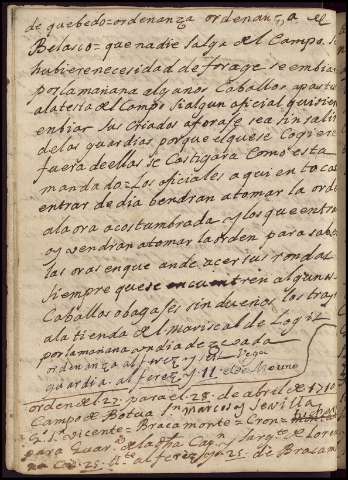 de quebedo = ordenanza ordenanza el
Belasco = que nadie salga del Campo. Si
hubiere necesidad de forage se embia
por la mañana algunos Caballos a pastu
a la testa del Campo si algun oficial quisiere
enbiar sus criados a forage sea sin salir
de las guardias porque el que se Cogiere
fuera de ellas se Castigara Como esta
mandado = Los oficiales a quien toca
entrar de dia bendran a tomar la orden
a la ora acostumbrada y los que entra
oy vendran a tomar la orden para saber
las oras en que an de acer sus rondas
siempre que se encuentren algunos
Caballos o bagajes sin dueños los tray
a la tienda del mariscal de Logis
por la mañana
ordenanza alferez
guardia alferez y 11
orden del 27 para el 28 de abril de 1710
Campo de Botua Sn Marcio y Sevilla
Sn Vicente = Bracamonte = Cron =
para Guar de la Capn y Sargto de
alferez y 25 de Bracam